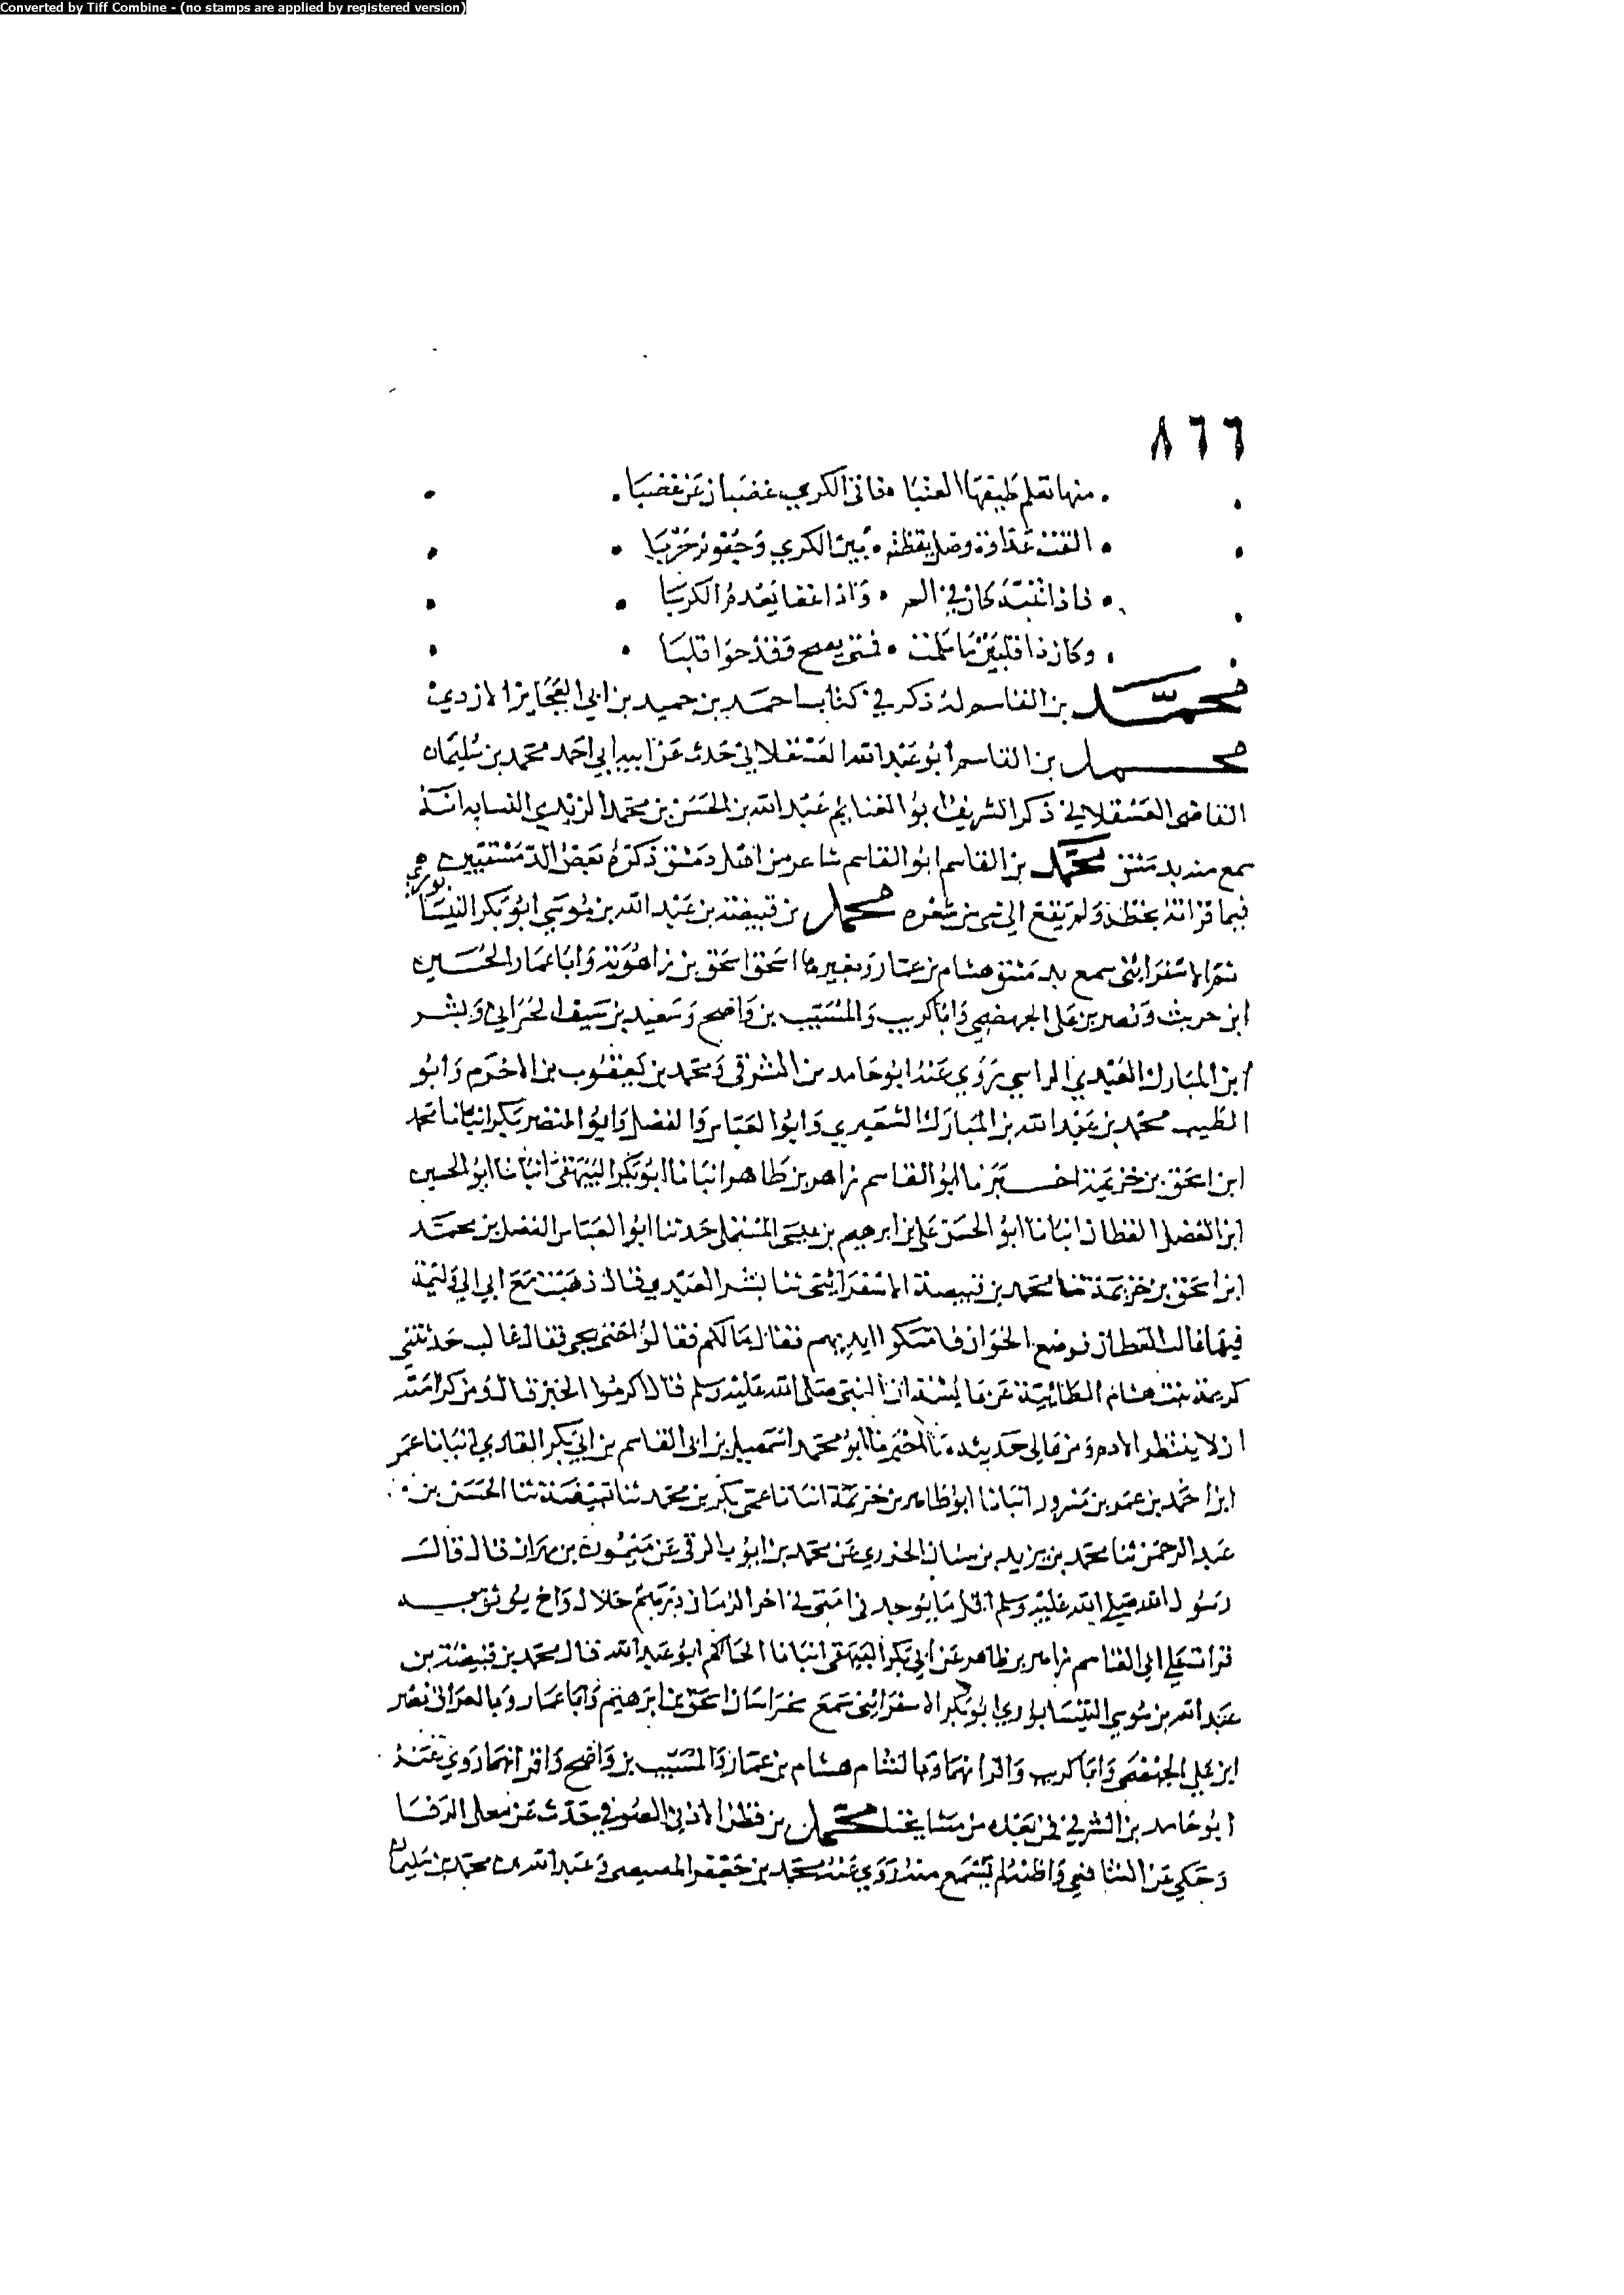 Converted by Tiff Combine - (no stamps are applied by registered version)
٨٦٦
منها تعلم طيفها العتبا فاتى الكرى غضبان عن غضبا
الفت عداوة وصل يقظته بين الكرى وجفونه حربا
فاذا تنبه كان في الـ واذا غفا يعدم الكربا
وكان ذا قلبين ما سلمت فمتى يصح وقد حوا قلبا
محمد بن القاسم له ذكر في كتاب احمد بن حميد بن ابي العجايز الازدي
محمد بن القاسم ابو عبد الله العسقلاني حدث عن ابيه ابي احمد محمد بن سليمان
القاضي العسقلاني ذكر الشريف ابو الغنايم عبد الله بن الحسن بن محمد الزيدي النسابه انه
سمع منه بدمشق محمد بن القاسم ابو القاسم شاعر من اهل دمشق ذكره بعض الدمشقيين
فيما قراته بخطه ولم يقع الي شي من شعره محمد بن قبيصة بن عبد الله بن موسى ابو بكر النيسابوري
ثم الاسفرايني سمع بدمشق هشام بن عمار وبغيرها اسحق بن راهويه وابا عمار الحسين
ابن حريث ونصر بن علي الجهضمي وابا كريب والمسيب بن واضح وسعيد بن سيف الحراني وبشر
ابن المبارك العبدي الراسبي روى عنه ابو حامد بن الشرقي ومحمد بن يعقوب بن الاخرم وابو
الطيب محمد بن عبد الله بن المبارك الشعيري وابو العباس الفضل وابو المنضر بكر ابنا محمد
ابن اسحق بن خزيمة اخبرنا ابو القاسم زاهر بن طاهر انبانا ابو بكر البيهقي انبانا ابو الحسين
ابن الفضل القطان انبانا ابو الحسن علي بن ابرهيم بن عيسى المستملي حدثنا ابو العباس الفضل بن محمد
ابن اسحق بن خزيمة ثنا محمد بن قبيصة الاسفرايني ثنا بشر العبدي قال ذهبت مع ابي الى وليمة
فيها غالب القطان فوضع الخوان فامسكوا ايديهم فقال ما لكم فقالوا حتى يجي فقال غالب حدثتني
كريمة بنت هشام الطائية عن عايشة ان النبي صلى الله عليه وسلم قال اكرموا الخبز قال ومن كرامته
ان لا ينتظر الادم ومن عالي حديثه ما اخبرنا ابو محمد اسمعيل بن ابي القاسم بن ابي بكر القاري انبانا عمر
ابن احمد بن عمر بن مسرور انبانا ابو طاهر بن خزيمة انبانا عمى بكر بن محمد ثنا قبيصة ثنا الحسن بن
عبد الرحمن ثنا محمد بن يزيد بن سنان الجزري عن محمد بن ايوب الرقي عن ميمون بن مهران قال قال
رسول الله صلى الله عليه وسلم اقل ما يوجد في امتي في اخر الزمان درهم حلال واخ يوثق به
قرات على ابي القاسم زاهر بن طاهر عن ابي بكر البيهقي انبانا الحاكم ابو عبد الله قال محمد بن قبيصة بن
عبد الله بن موسى النيسابوري ابو بكر الاسفرايني سمع بخراسان اسحق بن ابرهيم وابا عمار وبالعراق نصر
ابن علي الجهضمي وابا كريب واقرانهما وبالشام هشام بن عمار والمسيب بن واضح واقرانهما روى عنه
ابو حامد بن الشرقي فمن بعده من مشايخنا محمد بن قطن الاذني الصوفي حدث عن معلى الرفا
وحكى عن الشافعي واظنه لم يسمع منه روى عنه محمد بن جعفر المصيصي وعبد الله بن محمد بن سليمان